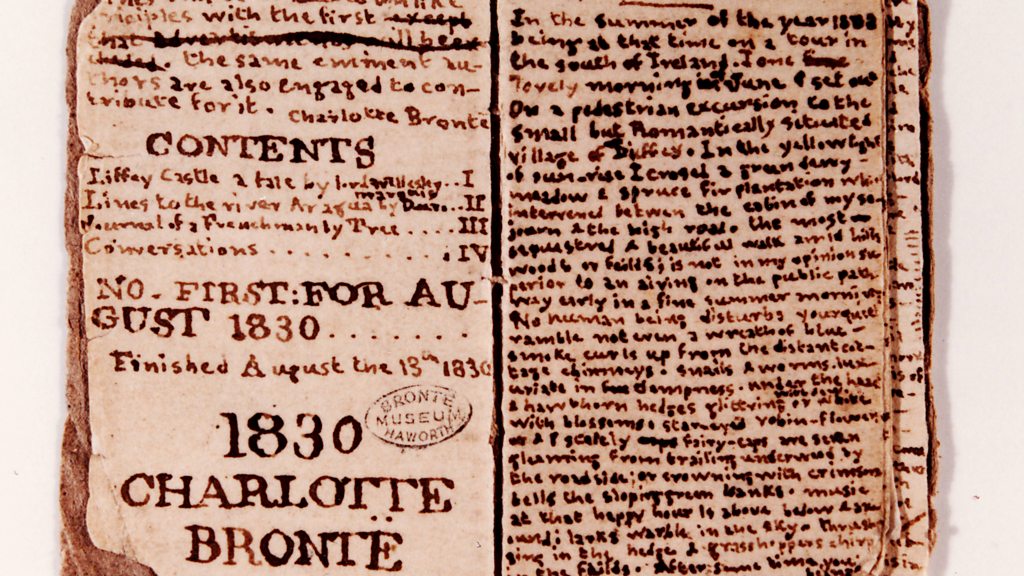 ciples with the first except
that advertisements will been
the same eminent au-
thors are also engaged to con-
tribute for it.
Charlotte Brontë
CONTENTS
Liffey Castle a tale by Lord Wellesley..I
Lines to the river Aragua by marquis Douro..II
Journal of a Frenchman by Tree ....III
Conversations . . . . . . . . . . . IV
NO. FIRST:FOR AU-
GUST 1830........
Finished August the 13th 1830
1830
CHARLOTTE
BRONTË
BRONTË
MUSEUM
HAWORTH
In the Summer of the year
being at that time on a tour in
the south of Ireland. I one
lovely morning in June I set out
On a pedestrian excursion to the
Small but Romantically situated
village of . In the yellow light
of sun-rise I crosed a green dewy
meadow & spruce fir plantation which
intervened betwen the cabin of my so-
journ & the high road. the most
sequestred & beautifull walk amid
woods or feilds, is not in my opinion su
perior to an airing on the public path
way early in a fine summer morning
No human being disturbs your quiet
ramble not even a wreath of blue-
smoke curls up from the distant cot-
tage chimneys. Snails & worms lux-
uriate in dampness. under the
hawthorn hedges glittering
with blossoms. robin-flowers
stately fairy-caps are seen
gleaming from trailing underwood by
the roadside, or crowning with crimson
bells the sloping green banks. music
at that happy hour is above below & ar-
ound; larks warble in the sky. thrushes
sing in the hedge & grasshoppers chirp
in the feilds. After some time you